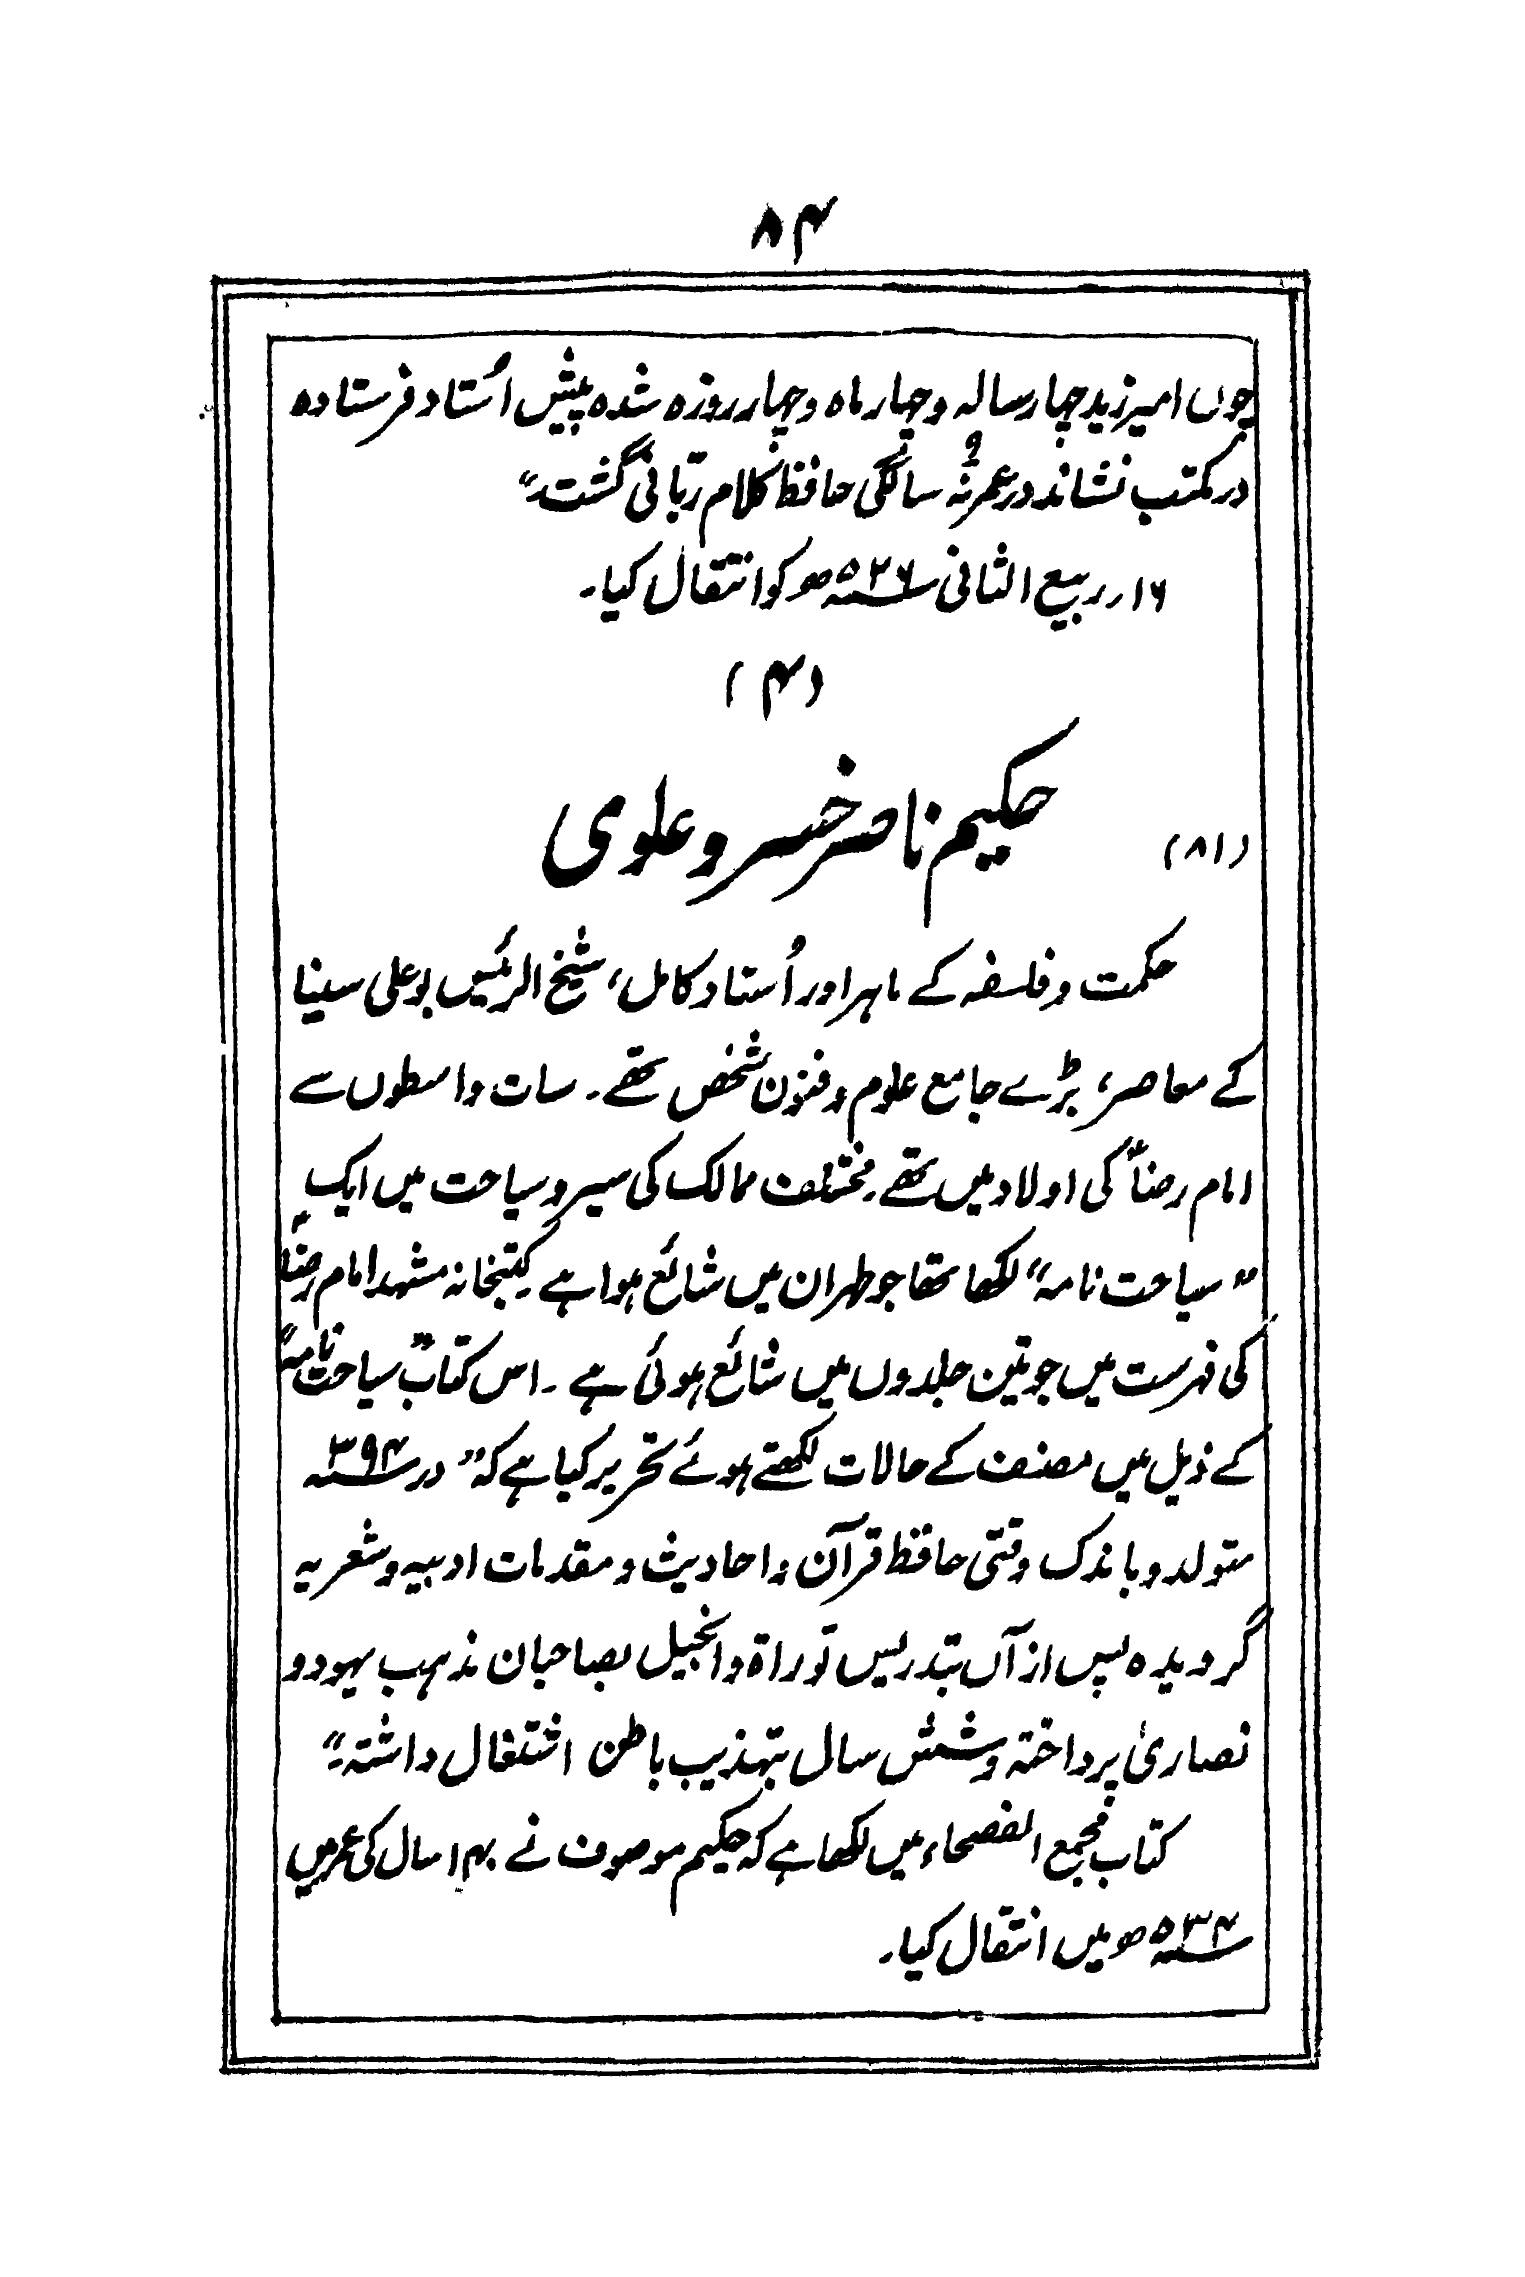 ۸۴
چوں امیر زید چہار سالہ و چہار ماہ و چہار روزہ شدہ پیش اُستاد فرستادہ
در مکتب نشاند در عمر نُہ سالگی حافظ کلام ربّانی گشت۔"
۱۶؍ ربیع الثانی ۵۲۶ھ کو انتقال کیا۔
(۴)
(۸۱) حکیم ناصر خسرو علوی
حکمت و فلسفہ کے ماہر اور اُستاد کامل، شیخ الرئیس بو علی سینا
کے معاصر، بڑے جامع علوم و فنون شخص تھے۔ سات واسطوں سے
امام رضاؑ کی اولاد میں تھے۔ مختلف ممالک کی سیر و سیاحت میں ایک
"سیاحت نامہ" لکھا تھا جو طہران میں شائع ہوا ہے۔ کتبخانہ مشہد امام رضاؑ
کی فہرست میں جو تین جلدوں میں شائع ہوئی ہے۔ اس کتاب "سیاحت نامہ"
کے ذیل میں مصنف کے حالات لکھتے ہوئے تحریر کیا ہے کہ "در ۳۹۴ھ
متولد و باندک وقتی حافظ قرآن و احادیث و مقدمات ادبیہ و شعریہ
گردیدہ پس از آں بتدریس توراۃ و انجیل بصاحبان مذہب یہود و
نصاریٰ پرداختہ و شش سال بتہذیب باطن اشتغال داشتہ۔"
کتاب مجمع الفصحاء میں لکھا ہے کہ حکیم موصوف نے ۱۴۰ سال کی عمر میں
۵۳۴ھ میں انتقال کیا۔